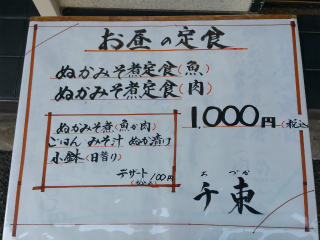 お昼の定食
ぬかみそ煮定食(魚)
ぬかみそ煮定食(肉)
1,000円(税込
ぬかみそ煮(魚か肉)
ごはん みそ汁 ぬか漬け
小鉢(日替り)
デザート 100円
(税込)
おづか
千束